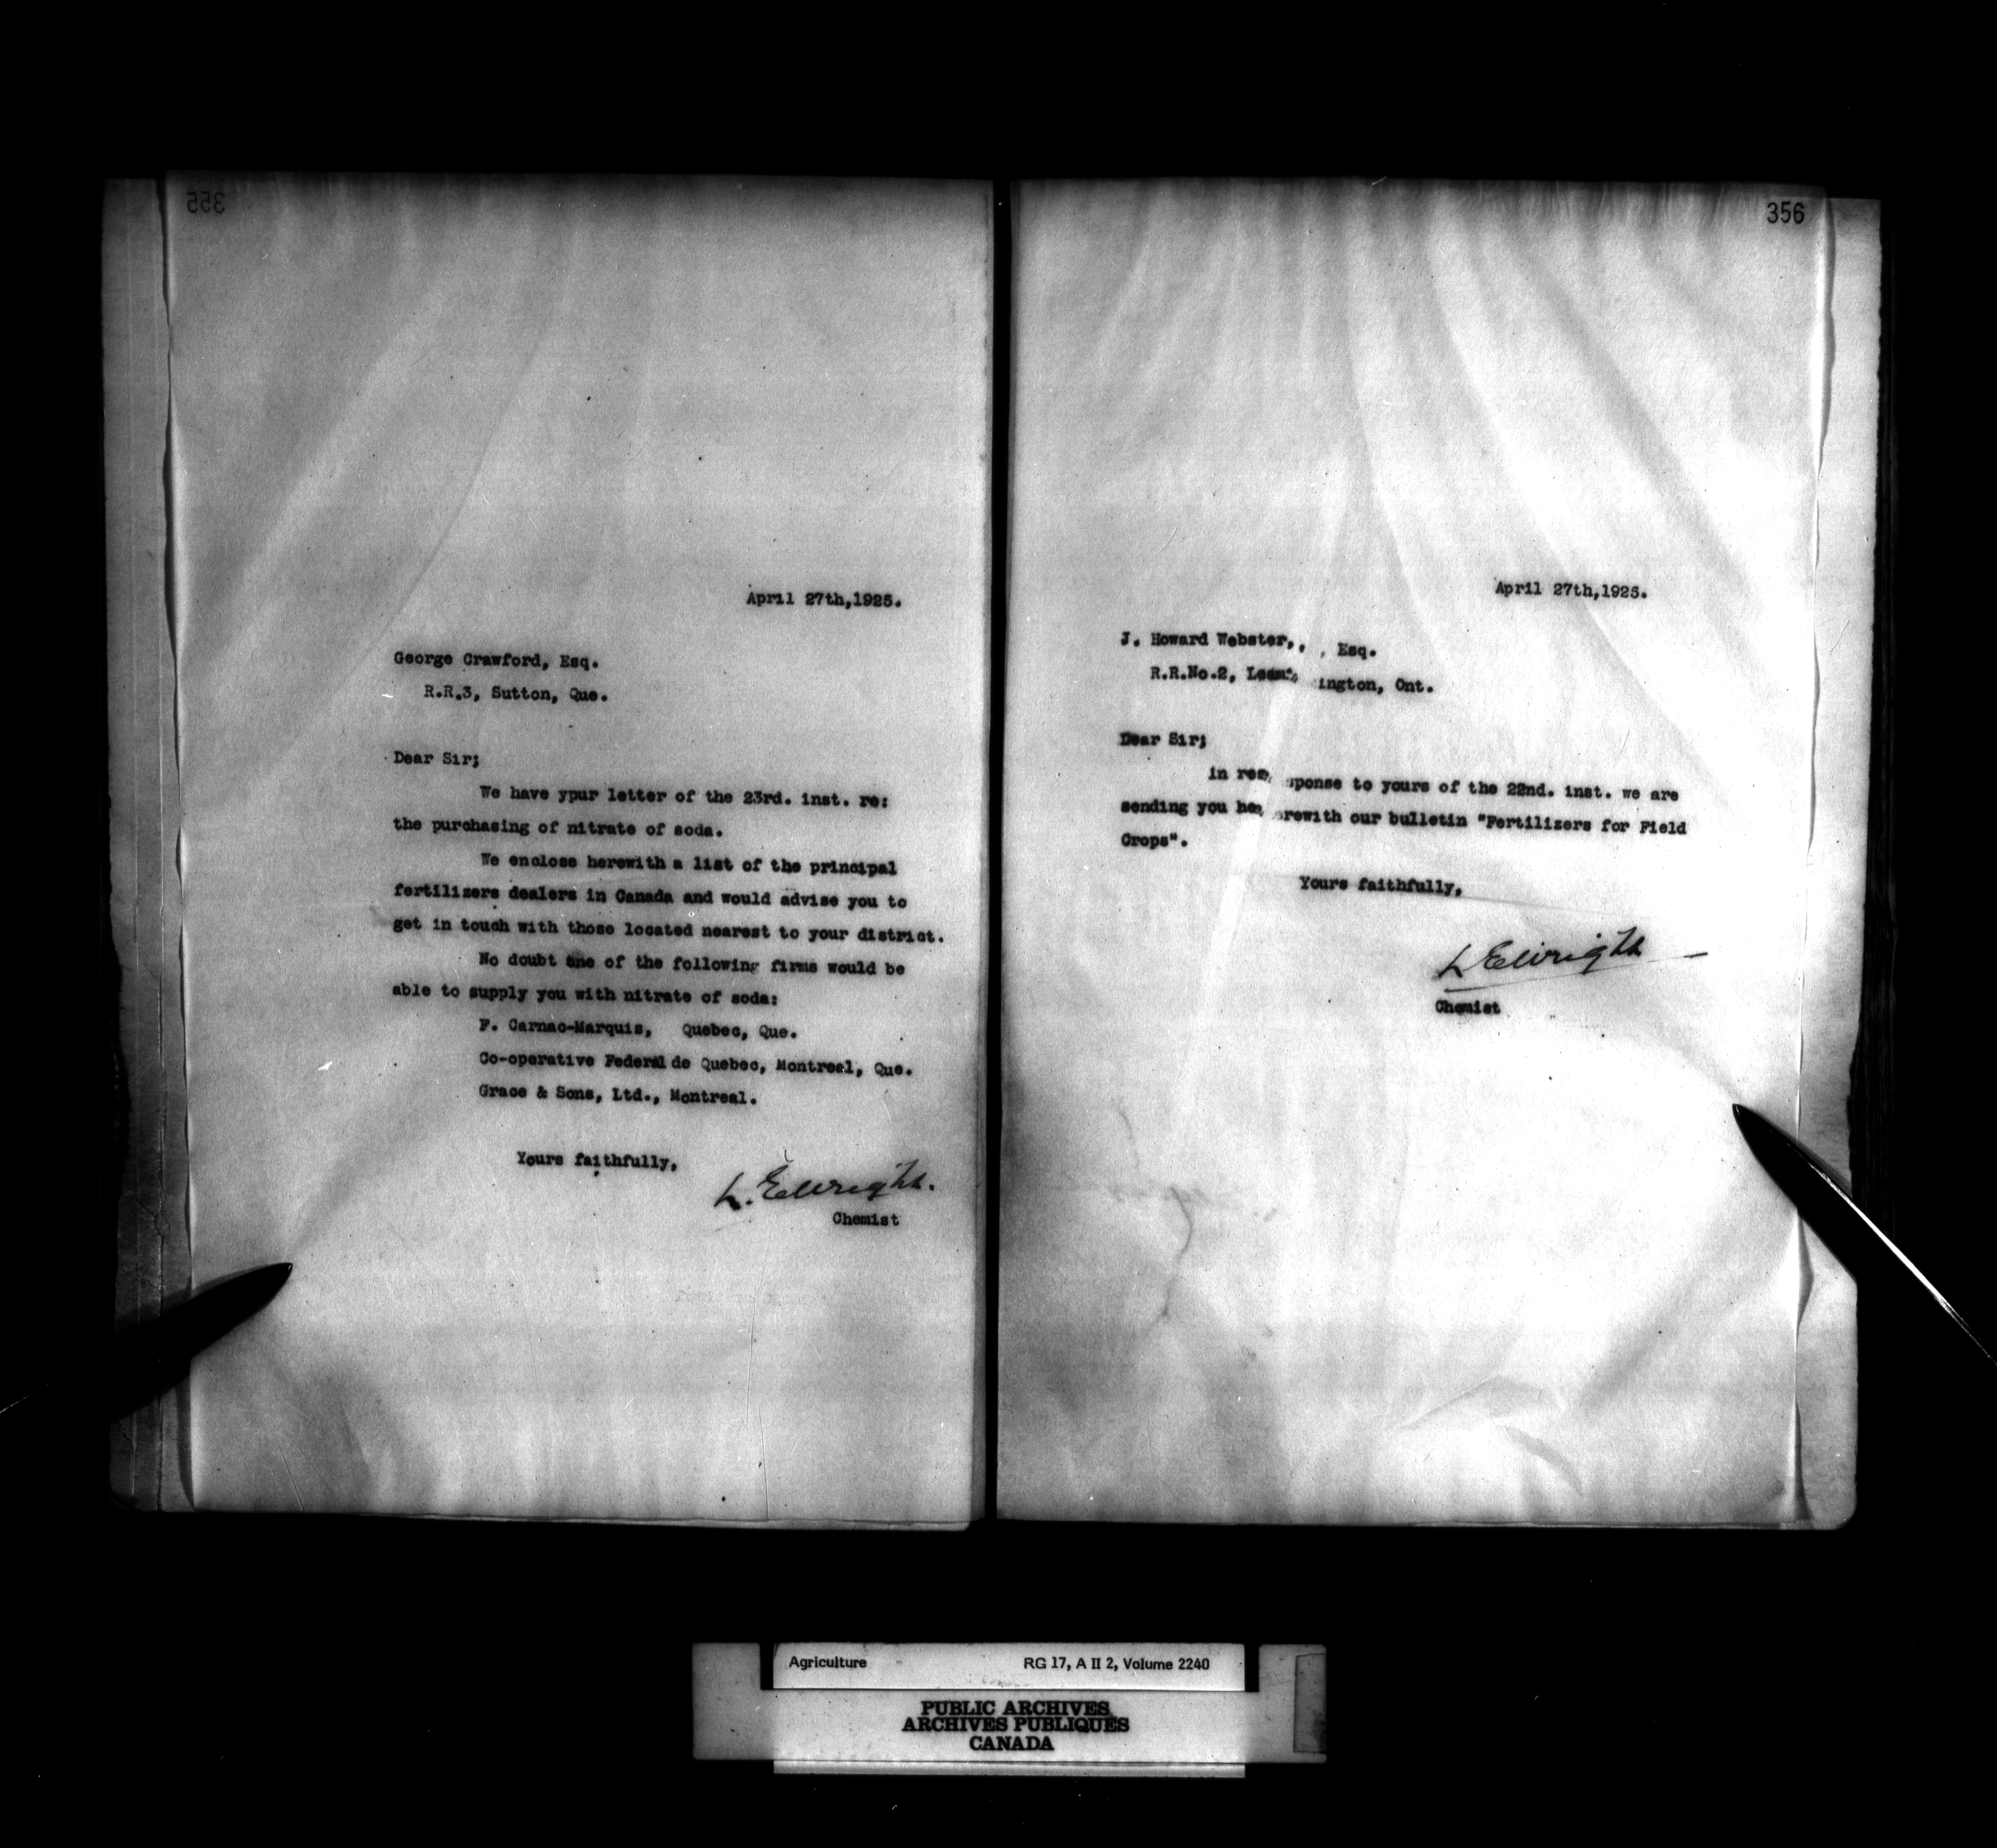 355
April 27th,1925.
George Crawford, Esq.
R.R.3, Sutton, Que.
Dear Sir;
We have ypur letter of the 23rd. inst. re:
the purchasing of nitrate of soda.
We enclose herewith a list of the principal
fertilizers dealers in Canada and would advise you to
get in touch with those located nearest to your district.
No doubt one of the following firms would be
able to supply you with nitrate of soda:
F. Carnac-Marquis, Quebec, Que.
Co-operative Federal de Quebec, Montreal, Que.
Grace & Sons, Ltd., Montreal.
Yours faithfully,
L. E. Wright.
Chemist
356
April 27th,1925.
J. Howard Webster, , , Esq.
R.R.No.2, Leamington, Ont.
Dear Sir;
In response to yours of the 22nd. inst. we are
sending you herewith our bulletin "Fertilizers for Field
Crops".
Yours faithfully,
L E Wright
Chemist
Agriculture RG 17, A II 2, Volume 2240
PUBLIC ARCHIVES
ARCHIVES PUBLIQUES
CANADA